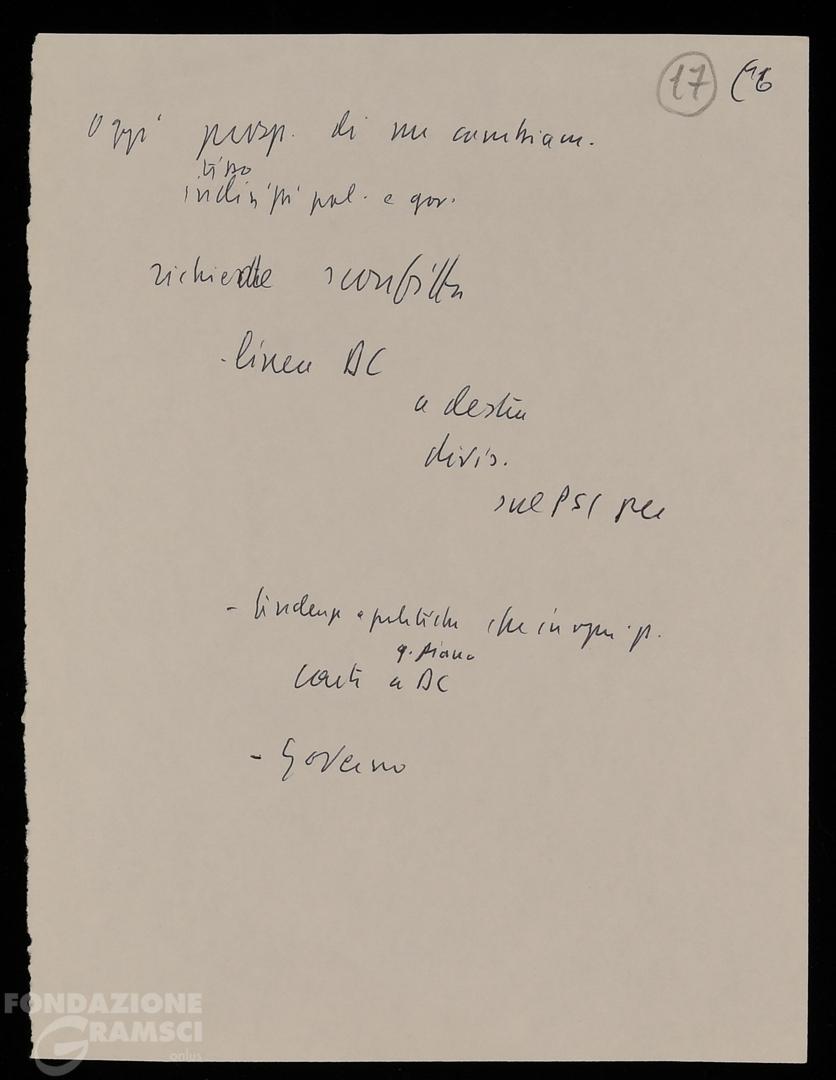 17 (16
Oggi prosp. di un cambiam.
indirizzi pol. e gov.
richiede sconfitta
- linea DC
a destra
divis.
sul PSI per
- tendenze politiche che in ogni p.
q. piano
conti a DC
- Governo
FONDAZIONE
GRAMSCI
onlus